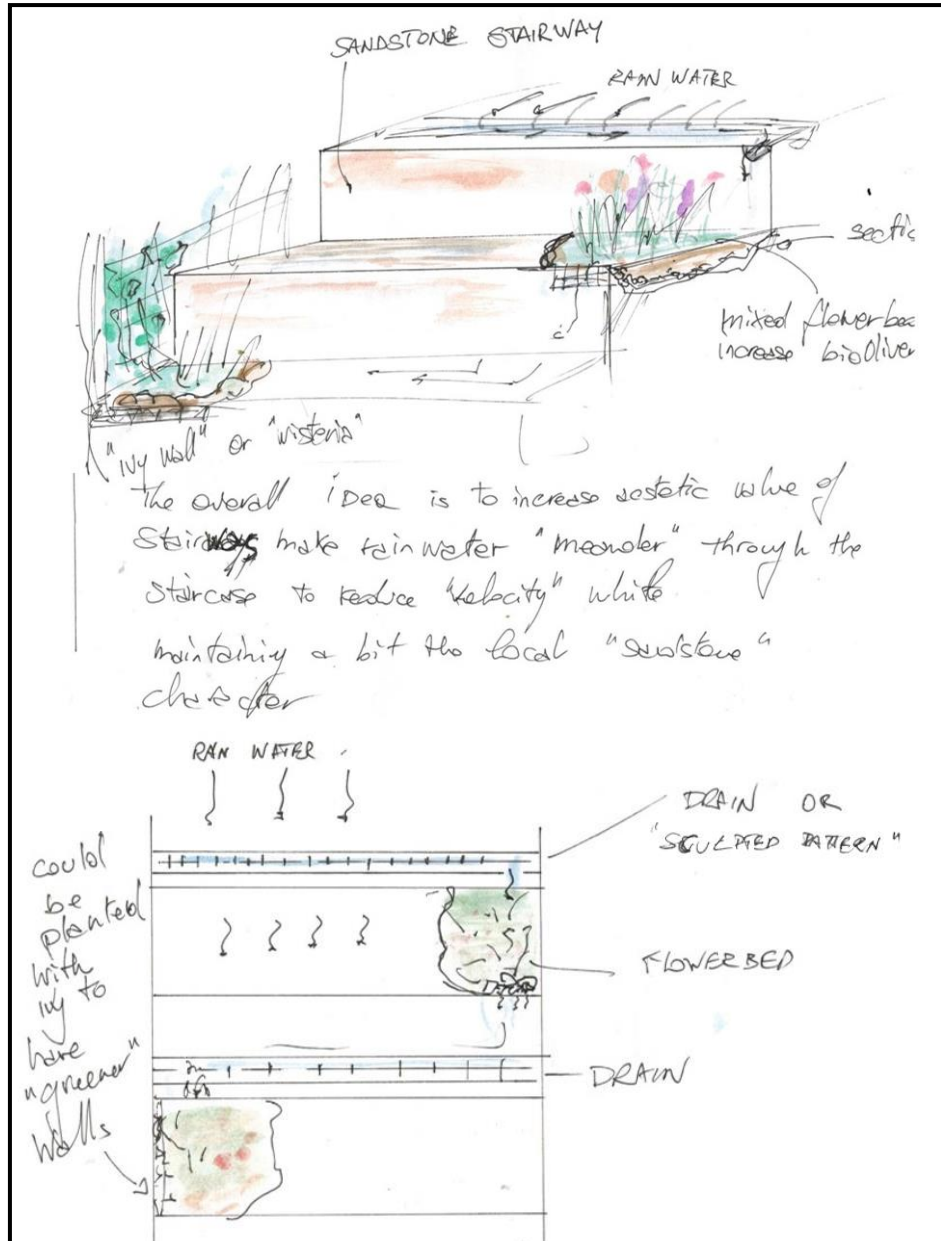 SANDSTONE STAIRWAY
RAIN WATER
sectio
mixed flowerbed
increase biodiver
"ivy wall" or "wisteria"
The overall iDea is to increase aestetic value of
Stairways make rainwater "meander" through the
staircase to reduce "velocity" while
maintaining a bit the local "sandstone"
character
RAIN WATER
DRAIN OR
"SCULPTED PATTERN"
could
be
planted
with
ivy to
have
"greener"
walls
FLOWERBED
DRAIN